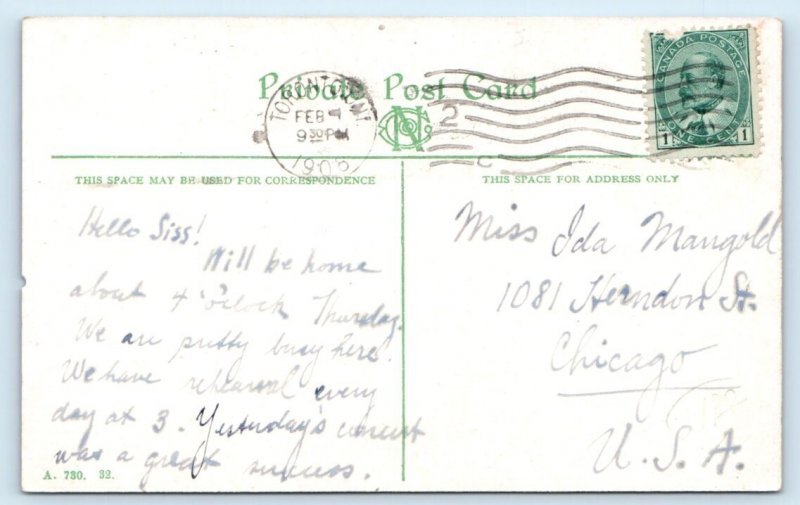 Private Post Card
TORONTO, ONT
FEB
9 30 PM
2
C
CANADA POSTAGE
1 ONE CENT 1
THIS SPACE MAY BE USED FOR CORRESPONDENCE
THIS SPACE FOR ADDRESS ONLY
Hello Siss!
Will be home
about 4 o'clock Thursday.
We are pretty busy here.
We have rehearsal every
day at 3. Yesterday's concert
was a great success.
A. 730. 32.
Miss Ida Mangold
1081 Herndon St.
Chicago
U.S.A.